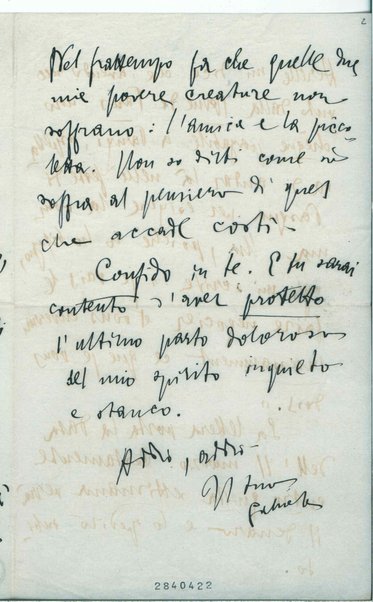 2
Nel frattempo fa che quelle due
mie povere creature non
soffrano: l'amica e la picco
letta. Non so dirti come io
soffra al pensiero di quel
che accade costì.
Confido in te. E tu sarai
contento d'aver protetto
l'ultimo parto doloroso
del mio spirito inquieto
e stanco.
Addio, addio.
Il tuo
Gabriele
2840422